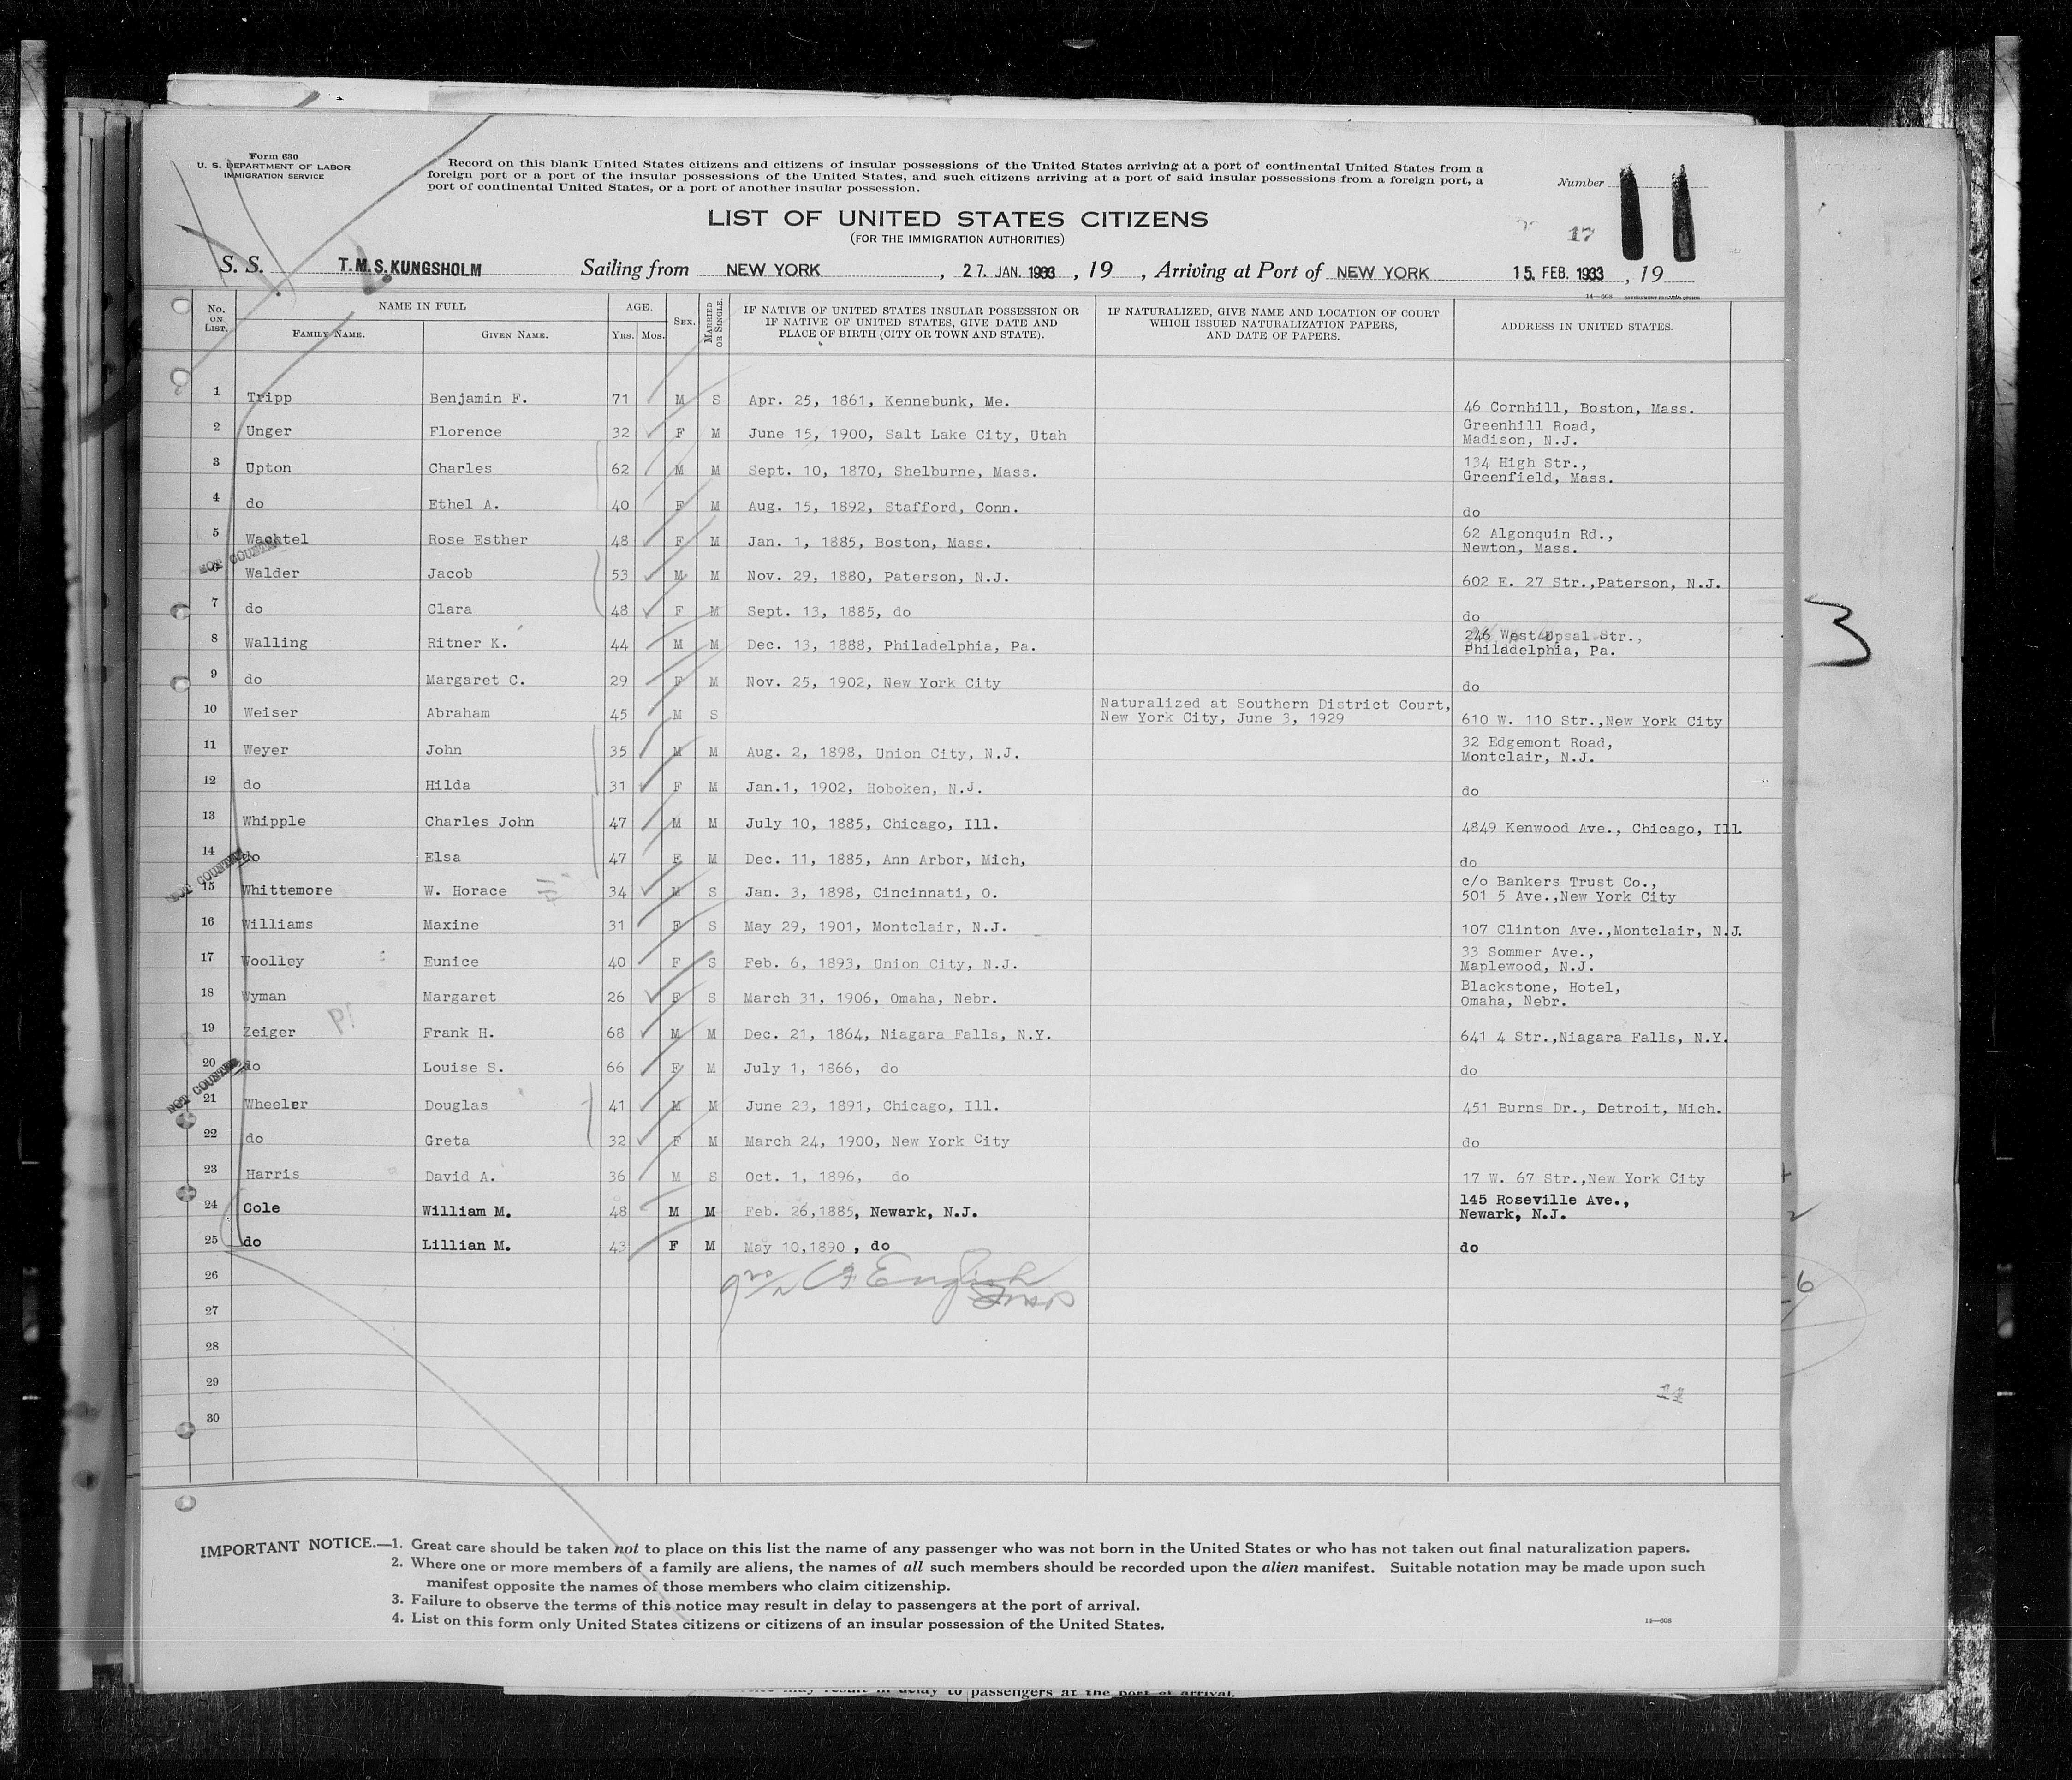 Form 630
U. S. DEPARTMENT OF LABOR
IMMIGRATION SERVICE
Record on this blank United States citizens and citizens of insular possessions of the United States arriving at a port of continental United States from a
foreign port or a port of the insular possessions of the United States, and such citizens arriving at a port of said insular possessions from a foreign port, a
port of continental United States, or a port of another insular possession.
Number 11
LIST OF UNITED STATES CITIZENS
(FOR THE IMMIGRATION AUTHORITIES)
17
S. S. T.M.S.KUNGSHOLM Sailing from NEW YORK, 27. JAN. 1933, 19 , Arriving at Port of NEW YORK 15. FEB. 1933, 19
14—608 GOVERNMENT PRINTING OFFICE
No. ON LIST. NAME IN FULL FAMILY NAME. GIVEN NAME. AGE. YRS. MOS. SEX. MARRIED OR SINGLE. IF NATIVE OF UNITED STATES INSULAR POSSESSION OR IF NATIVE OF UNITED STATES, GIVE DATE AND PLACE OF BIRTH (CITY OR TOWN AND STATE). IF NATURALIZED, GIVE NAME AND LOCATION OF COURT WHICH ISSUED NATURALIZATION PAPERS, AND DATE OF PAPERS. ADDRESS IN UNITED STATES.
1 Tripp Benjamin F. 71 M S Apr. 25, 1861, Kennebunk, Me. 46 Cornhill, Boston, Mass.
2 Unger Florence 32 F M June 15, 1900, Salt Lake City, Utah Greenhill Road,
Madison, N.J.
3 Upton Charles 62 M M Sept. 10, 1870, Shelburne, Mass. 134 High Str.,
Greenfield, Mass.
4 do Ethel A. 40 F M Aug. 15, 1892, Stafford, Conn. do
5 Wachtel Rose Esther 48 F M Jan. 1, 1885, Boston, Mass. 62 Algonquin Rd.,
Newton, Mass.
NOT COUNTED
6 Walder Jacob 53 M M Nov. 29, 1880, Paterson, N.J. 602 E. 27 Str.,Paterson, N.J.
7 do Clara 48 F M Sept. 13, 1885, do do
8 Walling Ritner K. 44 M M Dec. 13, 1888, Philadelphia, Pa. 246 West Upsal Str.,
Philadelphia, Pa.
9 do Margaret C. 29 F M Nov. 25, 1902, New York City do
10 Weiser Abraham 45 M S Naturalized at Southern District Court,
New York City, June 3, 1929 610 W. 110 Str.,New York City
11 Weyer John 35 M M Aug. 2, 1898, Union City, N.J. 32 Edgemont Road,
Montclair, N.J.
12 do Hilda 31 F M Jan.1, 1902, Hoboken, N.J. do
13 Whipple Charles John 47 M M July 10, 1885, Chicago, Ill. 4849 Kenwood Ave., Chicago, Ill.
14 do Elsa 47 F M Dec. 11, 1885, Ann Arbor, Mich, do
NOT COUNTED
15 Whittemore W. Horace 34 M S Jan. 3, 1898, Cincinnati, O. c/o Bankers Trust Co.,
501 5 Ave.,New York City
16 Williams Maxine 31 F S May 29, 1901, Montclair, N.J. 107 Clinton Ave.,Montclair, N.J.
17 Woolley Eunice 40 F S Feb. 6, 1893, Union City, N.J. 33 Sommer Ave.,
Maplewood, N.J.
18 Wyman Margaret 26 F S March 31, 1906, Omaha, Nebr. Blackstone, Hotel,
Omaha, Nebr.
19 Zeiger Frank H. 68 M M Dec. 21, 1864, Niagara Falls, N.Y. 641 4 Str.,Niagara Falls, N.Y.
20 do Louise S. 66 F M July 1, 1866, do do
NOT COUNTED
21 Wheeler Douglas 41 M M June 23, 1891, Chicago, Ill. 451 Burns Dr., Detroit, Mich.
22 do Greta 32 F M March 24, 1900, New York City do
23 Harris David A. 36 M S Oct. 1, 1896, do 17 W. 67 Str.,New York City
24 Cole William M. 48 M M Feb. 26,1885, Newark, N.J. 145 Roseville Ave.,
Newark, N.J.
25 do Lillian M. 43 F M May 10,1890 , do do
26
English
27
28
29
30
3
2
6
IMPORTANT NOTICE.—1. Great care should be taken not to place on this list the name of any passenger who was not born in the United States or who has not taken out final naturalization papers.
2. Where one or more members of a family are aliens, the names of all such members should be recorded upon the alien manifest. Suitable notation may be made upon such
manifest opposite the names of those members who claim citizenship.
3. Failure to observe the terms of this notice may result in delay to passengers at the port of arrival.
4. List on this form only United States citizens or citizens of an insular possession of the United States.
14—608
may result in delay to passengers at the port of arrival.